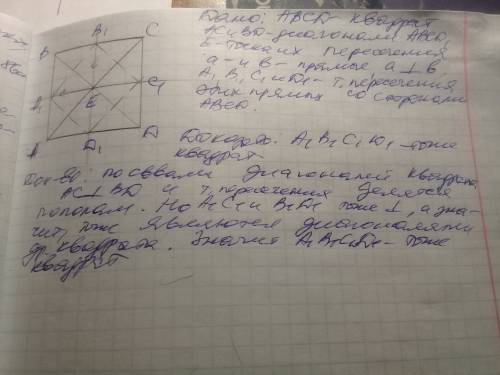 Дано: ABCD - квадрат
AC и BD - диагонали ABCD,
E - точка их пересечения
a - и в - прямые a ⊥ в,
A₁ B₁ C₁ и D₁ - т. пересечения
этих прямых со сторонами
ABCD.
B
B₁
C
A₁
E
C₁
A
D₁
D
Доказать: A₁ B₁ C₁ D₁ - тоже
квадрат
Док-во: по св-вам диагоналей квадрата
AC ⊥ BD и т. пересечения делятся
пополам. Но A₁C₁ и B₁D₁ тоже ⊥, а зна-
чит, тоже являются диагоналями
др. квадрата. Значит A₁B₁C₁D₁ - тоже
квадрат